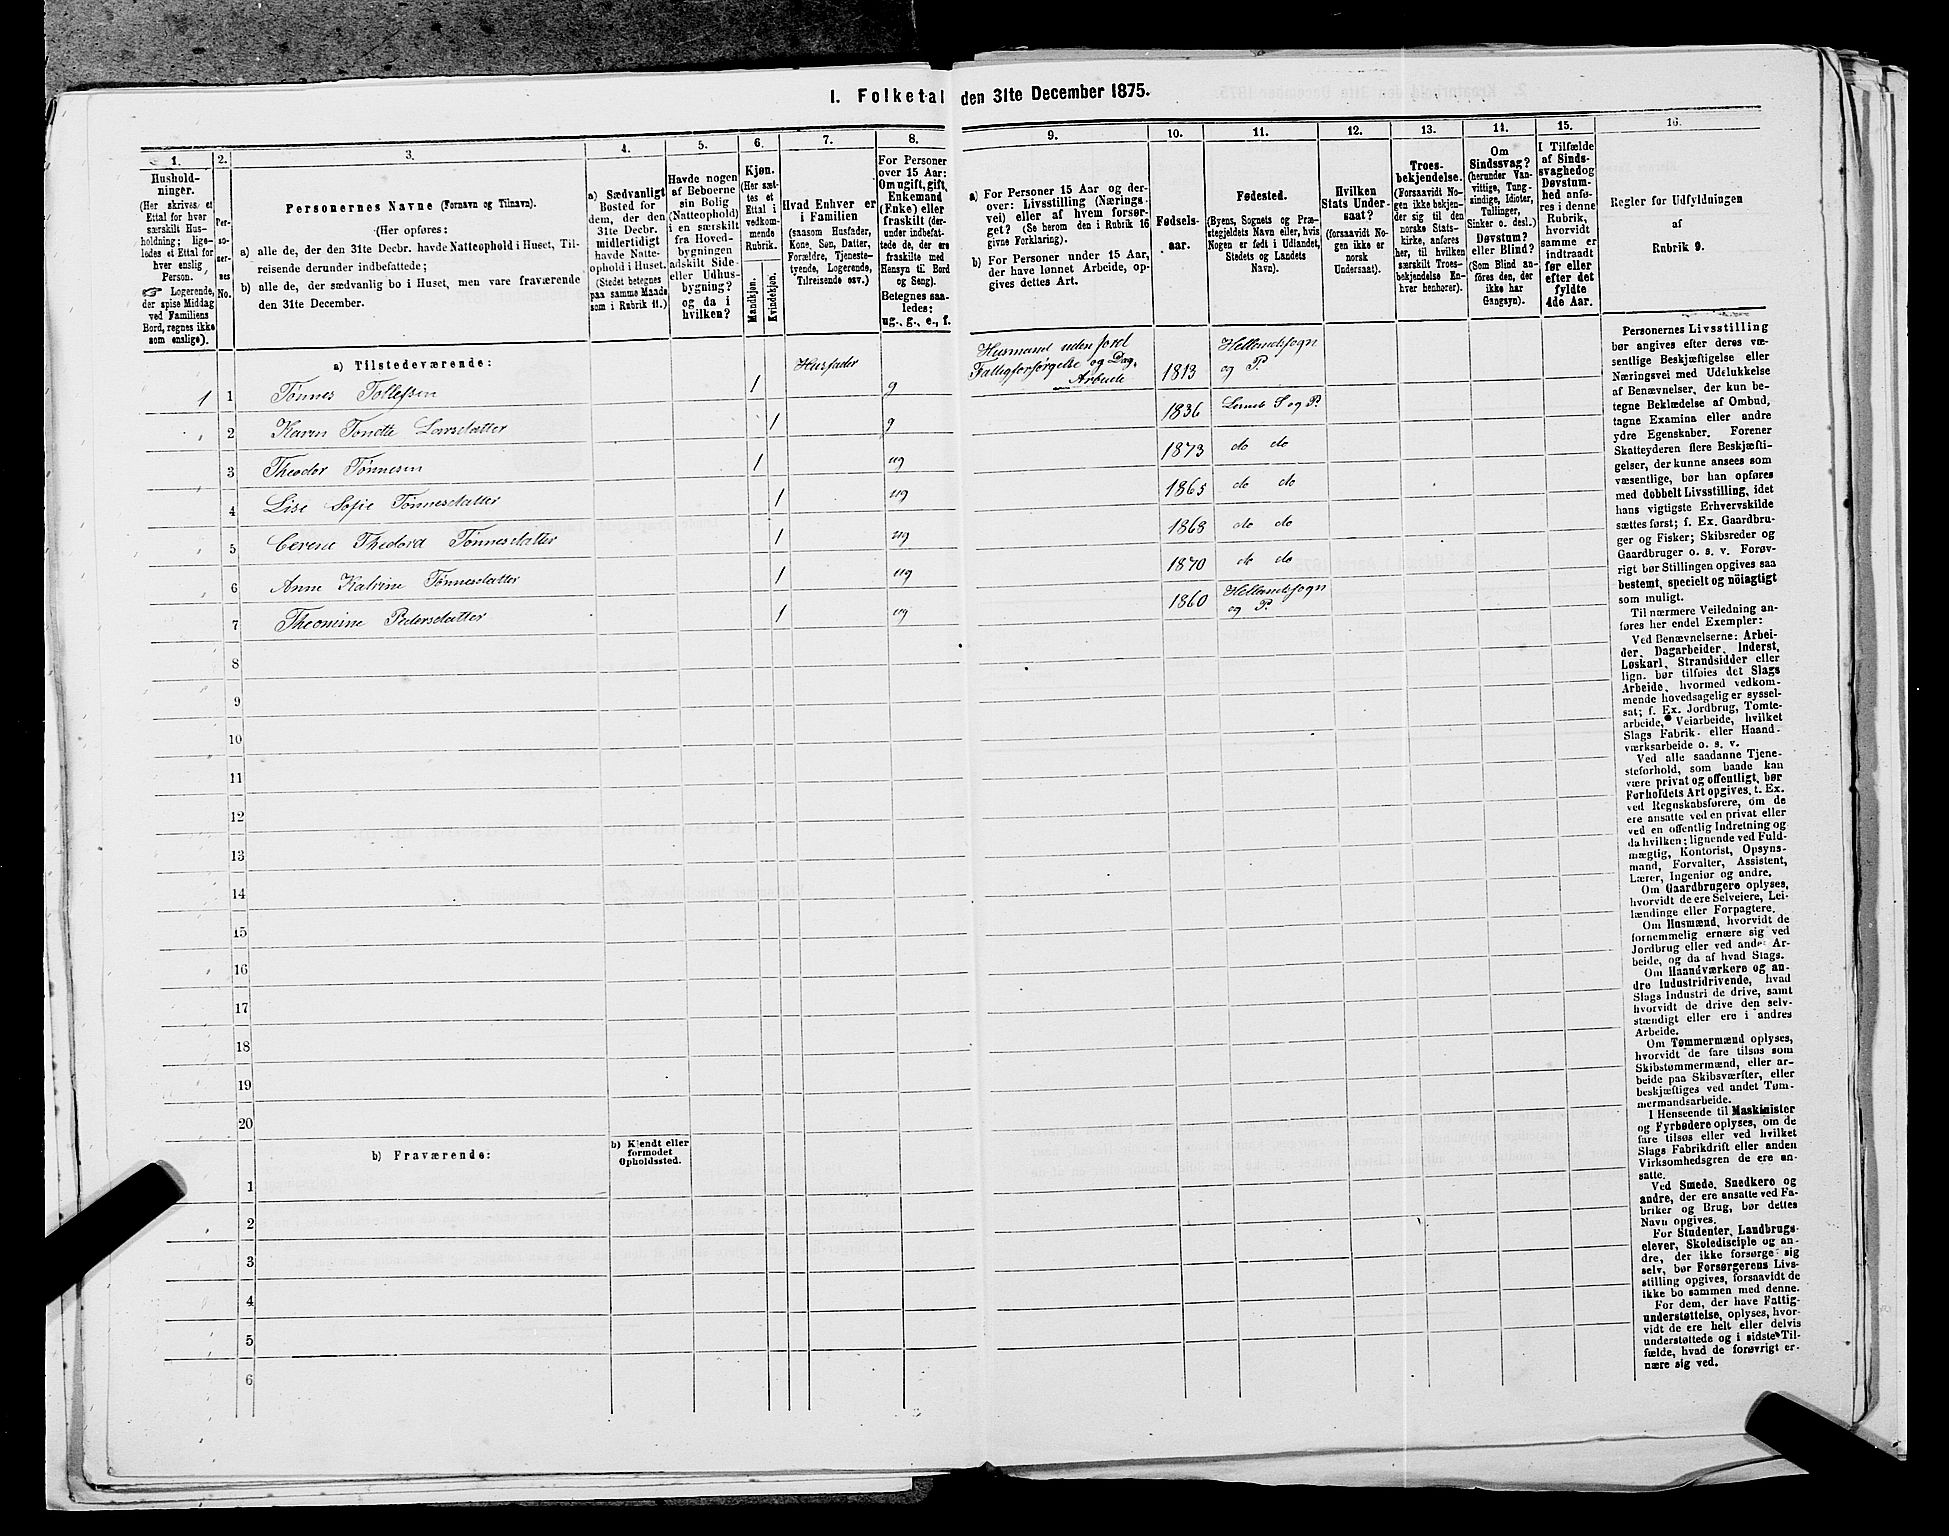 I. Folketal den 31te December 1875.
1.
2.
3.
4.
5.
6.
7.
8.
9.
10.
11.
12.
13.
14.
15.
16.
Hushold-
ninger.
(Her skrives et
Ettal for hver
særskilt Hus-
holdning; lige-
ledes et Ettal for
hver enslig
Person.
☞ Logerende,
der spise Middag
ved Familiens
Bord, regnes ikke
som enslige).
Per-
so-
ner-
nes
No.
Personernes Navne (Fornavn og Tilnavn).
(Her opføres:
a) alle de, der den 31te Decbr. havde Natteophold i Huset, Til-
reisende derunder indbefattede;
b) alle de, der sædvanlig bo i Huset, men vare fraværende
den 31te December.
a) Sædvanligt
Bosted for
dem, der den
31te Decbr.
midlertidigt
havde Natte-
ophold i Huset.
(Stedet betegnes
paa samme Maade
som i Rubrik 11.)
Havde nogen
af Beboerne
sin Bolig
(Natteophold)
i en særskilt
fra Hoved-
bygningen
adskilt Side-
eller Udhus-
bygning?
og da i
hvilken?
Kjøn.
(Her sæt-
tes et
Ettal i
vedkom-
mende
Rubrik.
Mandkjøn.
Kvindekjøn.
Hvad Enhver er
i Familien
(saasom Husfader,
Kone, Søn, Datter,
Forældre, Tjeneste-
tyende, Logerende,
Tilreisende osv.)
For Personer
over 15 Aar:
Om ugift, gift,
Enkemand
(Enke) eller
fraskilt (der-
under indbefat-
tede de, der ere
fraskilte med
Hensyn til Bord
og Seng).
Betegnes saa-
ledes:
ug., g., e., f.
a) For Personer 15 Aar og der-
over: Livsstilling (Nærings-
vei) eller af hvem forsør-
get? (Se herom den i Rubrik 16
givne Forklaring).
b) For Personer under 15 Aar,
der have lønnet Arbeide, op-
gives dettes Art.
Fødsels-
aar.
Fødested.
(Byens, Sognets og Præ-
stegjeldets Navn eller, hvis
Nogen er født i Udlandet,
Stedets og Landets
Navn).
Hvilken
Stats Under-
saat?
(forsaavidt No-
gen ikke er
norsk
Undersaat).
Troes-
bekjendelse.
(Forsaavidt No-
gen ikke bekjen-
der sig til den
norske Stats-
kirke, anføres
her, til hvilken
særskilt Troes-
bekjendelse En-
hver henhører).
Om
Sindssvag?
(herunder Van-
vittige, Tung-
sindige, Idioter,
Tullinger,
Sinker o. desl.)
Døvstum?
eller Blind?
(Som Blind an-
føres den, der
ikke har
Gangsyn).
I Tilfælde
af Sinds-
svaghed og
Døvstum-
hed anfø-
res i denne
Rubrik,
hvorvidt
samme er
indtraadt
før eller
efter det
fyldte
4de Aar.
Regler for Udfyldningen
af
Rubrik 9.
a) Tilstedeværende:
1 1 Tønnes Tollefsen 1 Husfader g Husmand uden Jord Fattigforsørgelse og Dag-Arbeide 1813 Hellandsogn og P.
2 Karen Tonette Larsdatter 1 g 1836 S og P.
3 Theodor Tønnesen 1 ug 1873 do do
4 Lise Sofie Tønnesdatter 1 ug 1865 do do
5 Thedora Tønnesdatter 1 ug 1868 do do
6 Anne Katrine Tønnesdatter 1 ug 1870 do do
7 Pedersdatter 1 ug 1860 Hellandsogn og P.
8
9
10
11
12
13
14
15
16
17
18
19
20
b) Fraværende:
b) Kjendt eller
formodet
Opholdssted.
1
2
3
4
5
6
Personernes Livsstilling
bør angives efter deres væ-
sentlige Beskjæftigelse eller
Næringsvei med Udelukkelse
af Benævnelser, der kun be-
tegne Beklædelse af Ombud,
tagne Examina eller andre
ydre Egenskaber. Forener
Skatteyderen flere Beskjæfti-
gelser, der kunne ansees som
væsentlige, bør han opføres
med dobbelt Livsstilling, idet
hans vigtigste Erhvervskilde
sættes først; f. Ex. Gaardbru-
ger og Fisker; Skibsreder og
Gaardbruger o. s. v. Forøv-
rigt bør Stillingen opgives saa
bestemt, specielt og nöiagtigt
som muligt.
Til nærmere Veiledning an-
føres her endel Exempler:
Ved Benævnelserne: Arbei-
der, Dagarbeider, Inderst,
Løskarl, Strandsidder eller
lign. bør tilføies det Slags
Arbeide, hvormed vedkom-
mende hovedsagelig er syssel-
sat; f. Ex. Jordbrug, Tomte-
arbeide, Veiarbeide, hvilket
Slags Fabrik- eller Haand-
værksarbeide o. s. v.
Ved alle saadanne Tjene-
steforhold, som baade kan
være privat og offentligt, bør
Forholdets Art opgives, t. Ex.
ved Regnskabsførere, om de
ere ansatte ved en privat eller
ved en offentlig Indretning og
da hvilken; lignende ved Fuld-
mægtig, Kontorist, Opsyns-
mand, Forvalter, Assistent,
Lærer, Ingeniør og andre.
Om Gaardbrugere oplyses,
hvorvidt de ere Selveiere, Lei-
lændinge eller Forpagtere.
Om Husmænd, hvorvidt de
fornemmelig ernære sig ved
Jordbrug eller ved andet Ar-
beide, og da af hvad Slags.
Om Haandværkere og an-
dre Industridrivende, hvad
Slags Industri de drive, samt
hvorvidt de drive den selv-
stændigt eller ere i andres
Arbeide.
Om Tømmermænd oplyses,
hvorvidt de fare tilsøs som
Skibstømmermænd, eller ar-
beide paa Skibsværfter, eller
beskjæftiges ved andet Tøm-
mermandsarbeide.
I Henseende til Maskinister
og Fyrbødere oplyses, om de
fare tilsøs eller ved hvilket
Slags Fabrikdrift eller anden
Virksomhedsgren de ere an-
satte.
Ved Smede, Snedkere og
andre, der ere ansatte ved Fa-
briker og Brug, bør dettes
Navn opgives.
For Studenter, Landbrugs-
elever, Skoledisciple og an-
dre, der ikke forsørge sig
selv, bør Forsørgerens Livs-
stilling opgives, forsaavidt de
ikke bo sammen med denne.
For dem, der have Fattig-
understøttelse, oplyses, hvor-
vidt de ere helt eller delvis
understøttede og i sidste Til-
fælde, hvad de forøvrigt er-
nære sig ved.